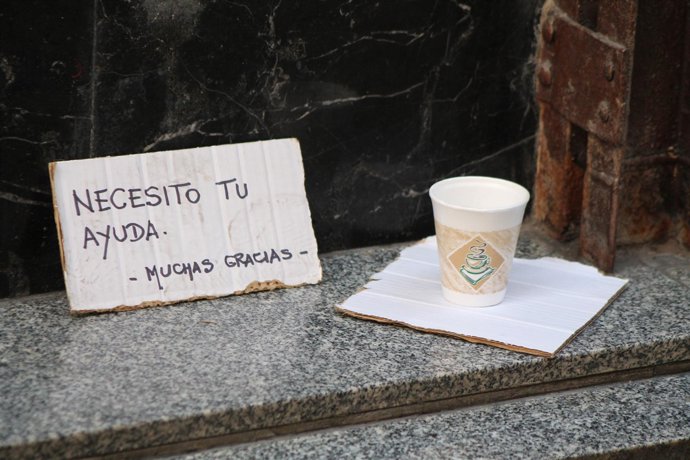 NECESITO TU
AYUDA.
- MUCHAS GRACIAS -